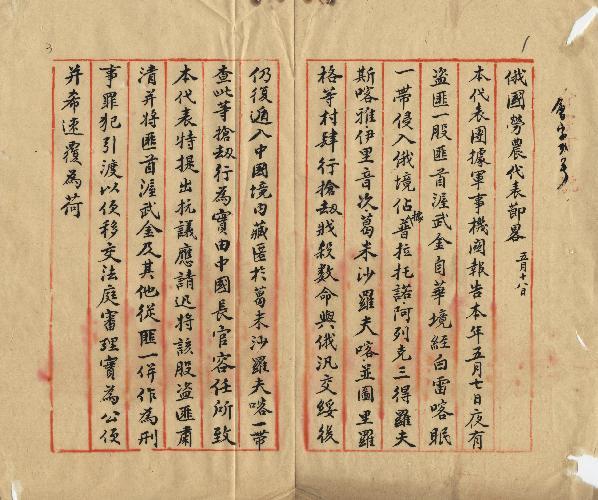 俄國勞農代表節畧 五月十八日
本代表團據軍事機關報告本年五月七日夜有
盜匪一股匪首渥武金自華境經白雷喀眠
一帶侵入俄境佔據普拉托諾阿列克三得羅夫
斯喀雅伊里音次葛未沙羅夫喀並圖里羅
格等村肆行搶刼戕殺数命與俄汎交綏後
仍復遁入中國境內藏匿於葛未沙羅夫喀一帶
查此等搶刼行為實由中國長官容任所致
本代表特提出抗議應請迅將該股盜匪肅
清并將匪首渥武金及其他從匪一併作為刑
事罪犯引渡以便移交法庭審理實為公便
并希速覆為荷